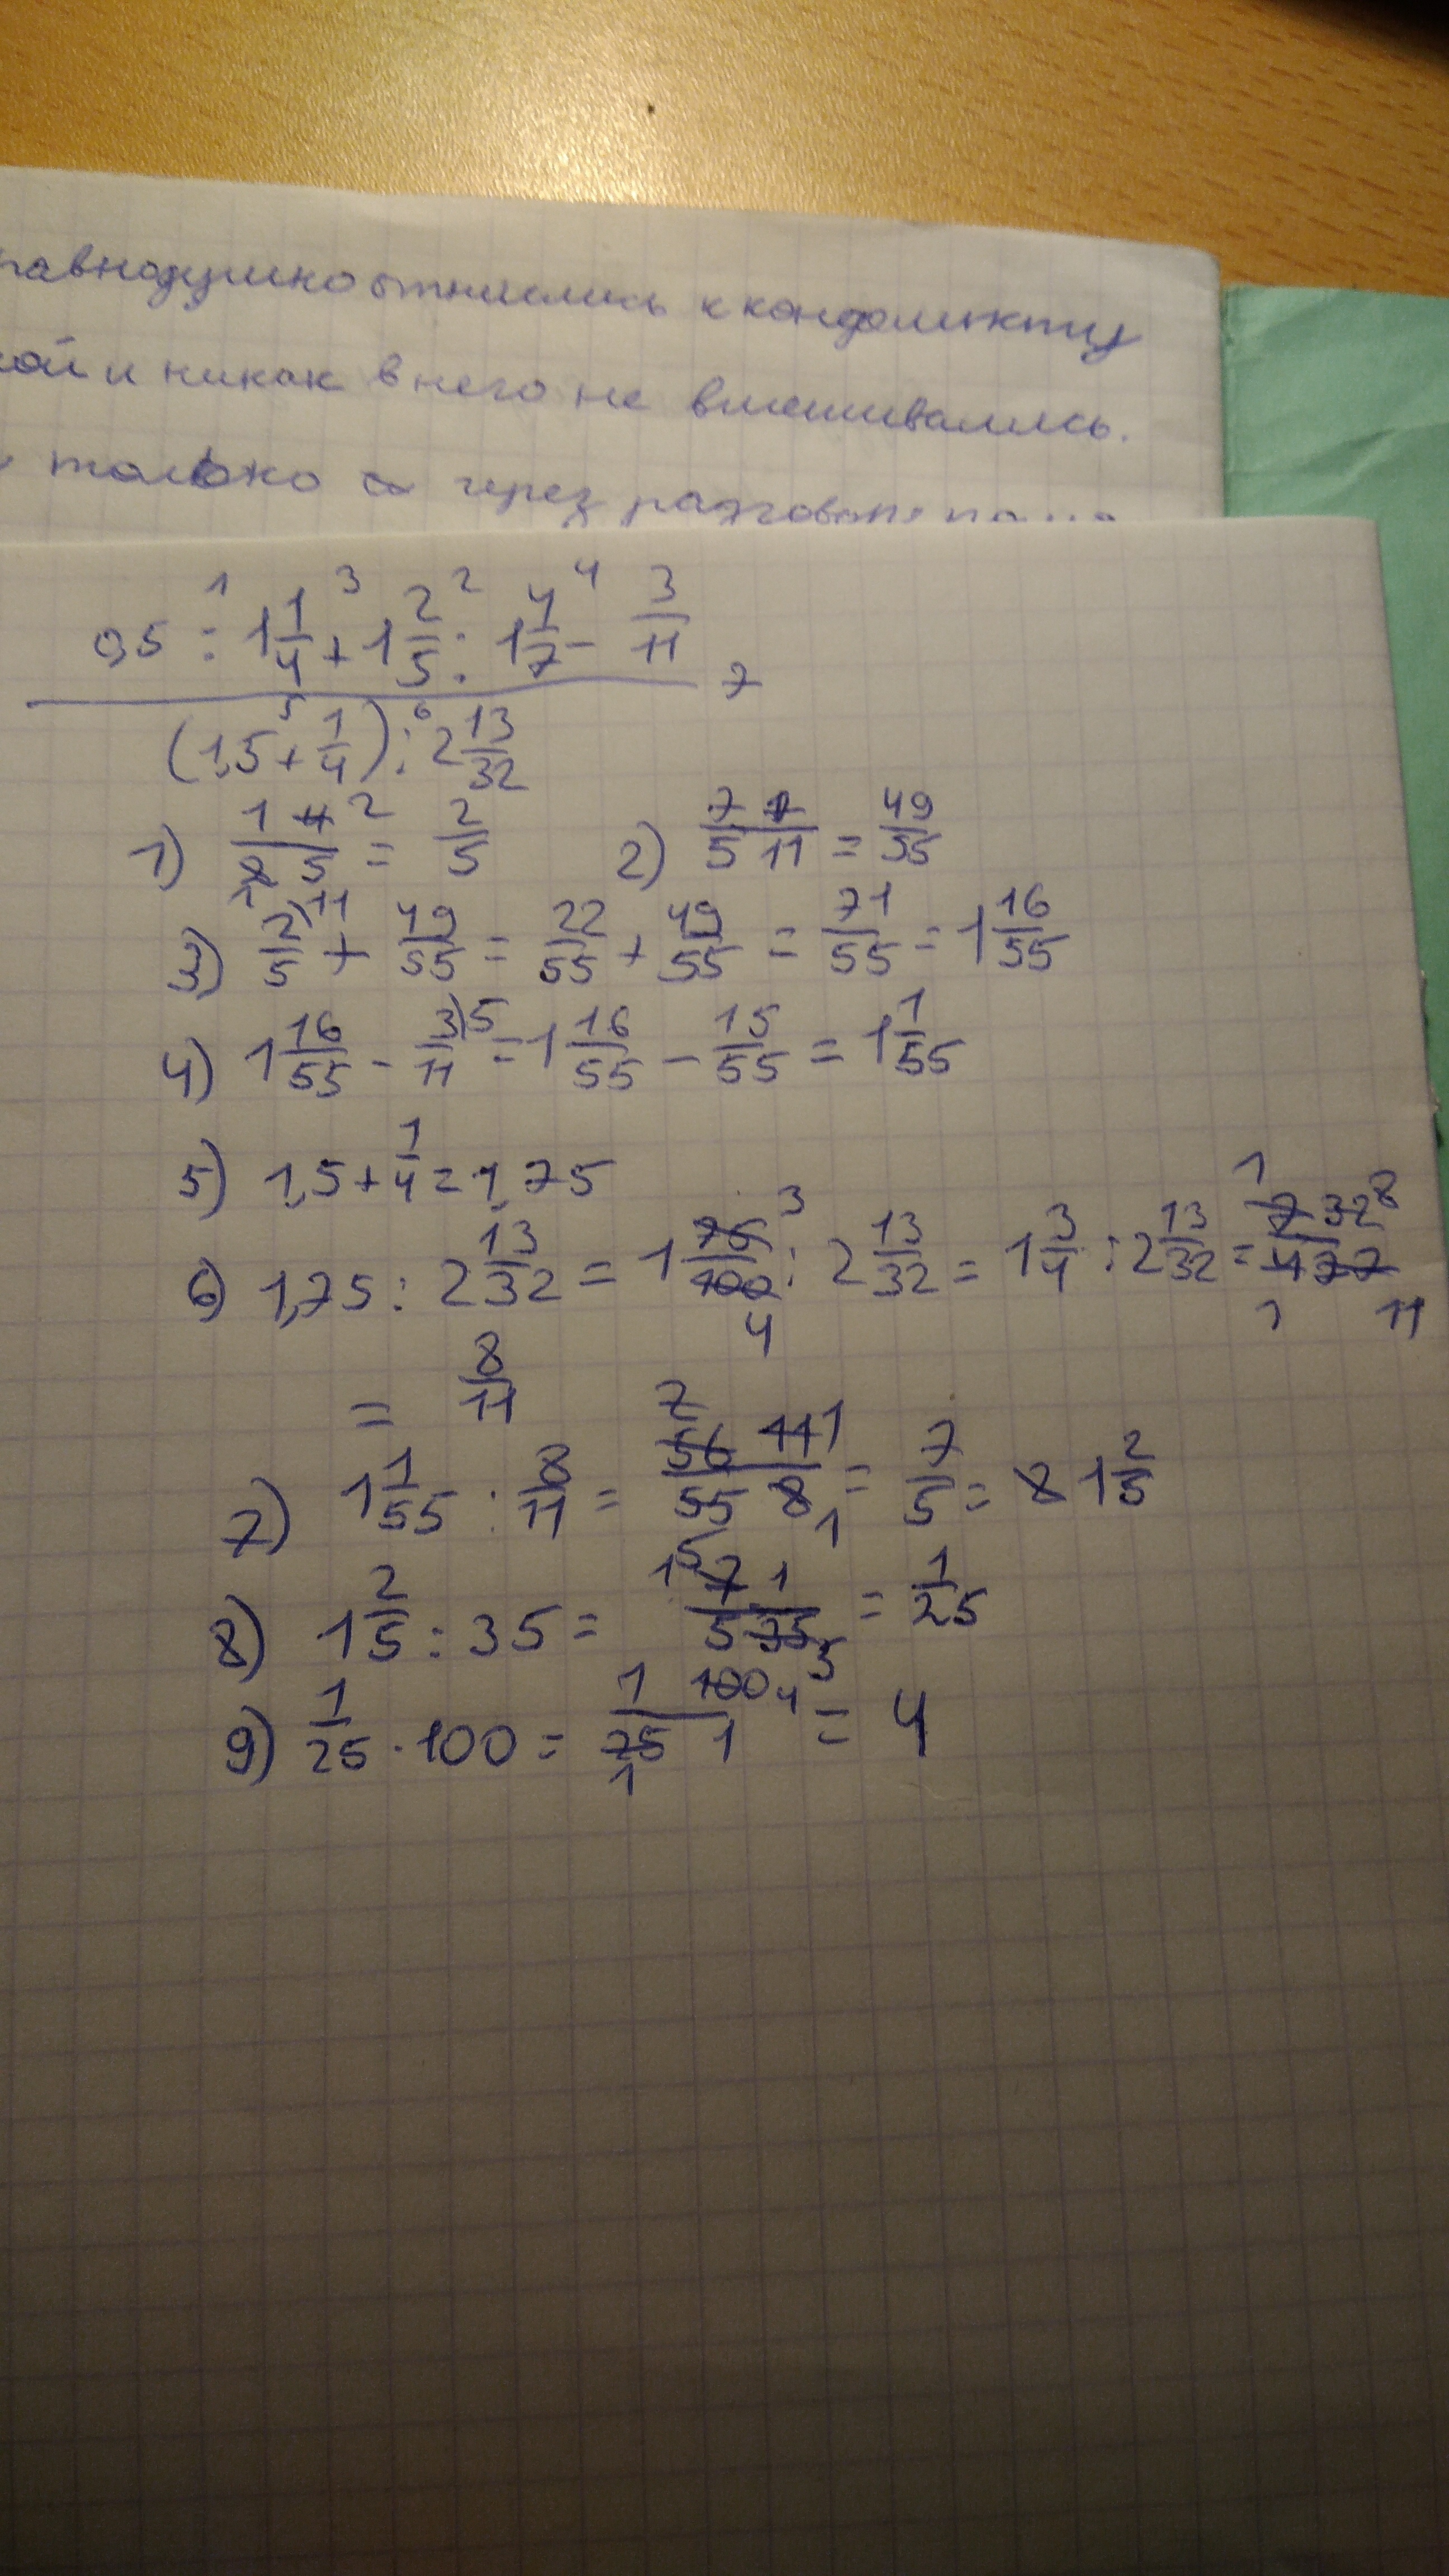 равнодушно отнеслись к конфликту
и никак в него не вмешивались.
только через
0,5 :¹ 1 1/4 +³ 1 2/5 :² 1 4/7 -⁴ 3/11
7
(1,5 +⁵ 1/4) :⁶ 2 13/32
1) 1 4 2 / 2 5 1 = 2/5 2) 7 7 / 5 11 = 49/55
3) 2/5 ⁾¹¹ + 49/55 = 22/55 + 49/55 = 71/55 = 1 16/55
4) 1 16/55 - 3/11 ⁾⁵ = 1 16/55 - 15/55 = 1 1/55
5) 1,5 + 1/4 = 1,75
6) 1,75 : 2 13/32 = 1 75/100 3/4 : 2 13/32 = 1 3/4 : 2 13/32 = 1 7 32 8 / 4 77 1 11
= 8/11
7) 1 1/55 : 8/11 = 7 56 11 1 / 55 8 5 1 = 7/5 = 8 1 2/5
8) 1 2/5 : 35 = 1 7 1 / 5 35 5 = 1/25
9) 1/25 · 100 = 1 100 4 / 25 1 1 = 4